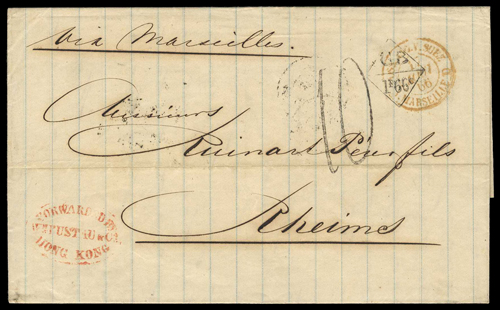 Via Marseilles.
GB
1F 60c
MARSEILLE
10
Messieurs
Ruinart Père & fils
Rheims
FORWARDED BY
HONG KONG